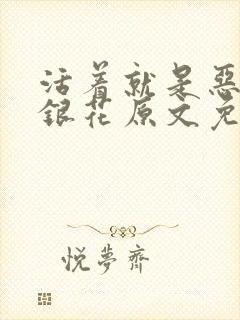 活着就是恶
銀花原文免
悦夢齋